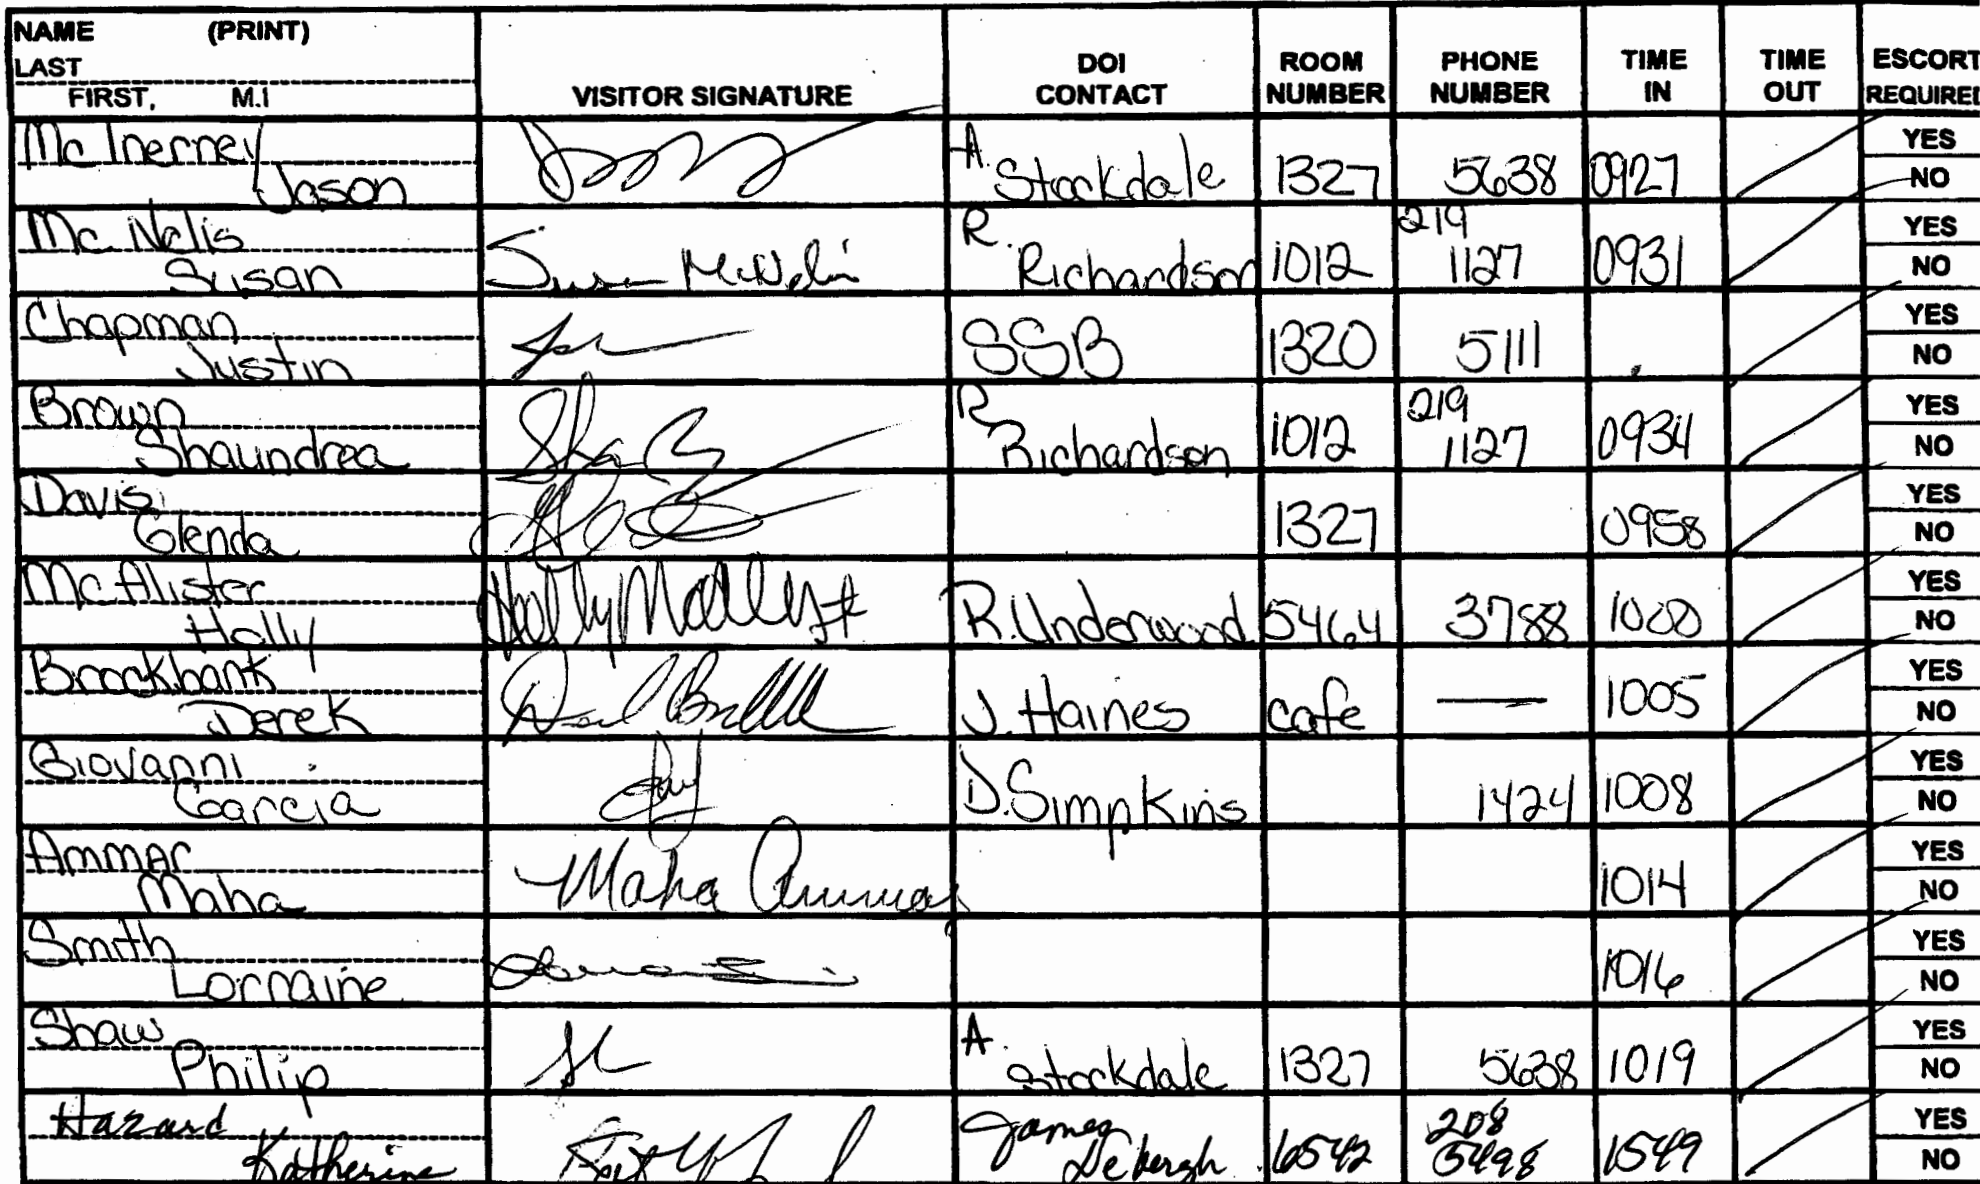 NAME (PRINT)
LAST
FIRST, M.I
VISITOR SIGNATURE
DOI CONTACT
ROOM NUMBER
PHONE NUMBER
TIME IN
TIME OUT
ESCORT REQUIRED
Mc Inerney
Jason
A. Stockdale 1327 5638 0927 YES NO
Mc Nelis
Susan
Susan McNelis
R. Richardson 1012 219 1127 0931 YES NO
Chapman
Justin
SSB 1320 5111 YES NO
Brown
Shaundrea
R Richardson 1012 219 1127 0934 YES NO
Davis
Glenda
1327 0958 YES NO
McAlister
Holly
R. Underwood 5464 3788 1000 YES NO
Brockbank
Derek
J. Haines cafe — 1005 YES NO
Giovanni
Garcia
D. Simpkins 1424 1008 YES NO
Ammar
Maha
Maha Ammar
1014 YES NO
Smith
Lorraine
1016 YES NO
Shaw
Philip
A. Stockdale 1327 5638 1019 YES NO
Hazard
Katherine
James Debergh 6542 208 5498 1549 YES NO